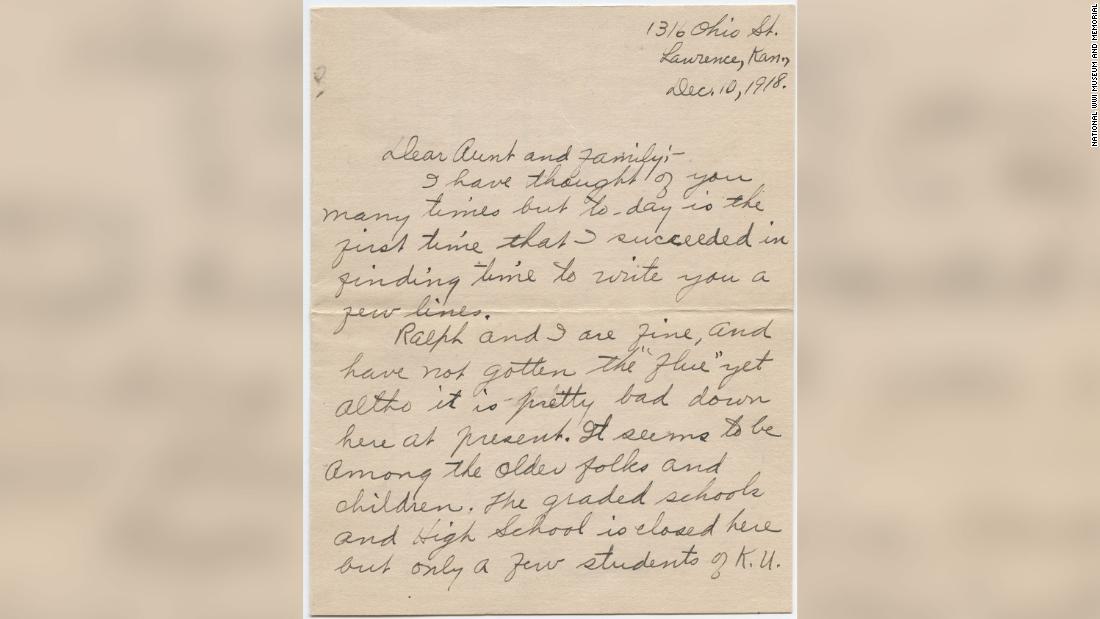 1316 Ohio St.
Lawrence, Kan.,
Dec. 10, 1918.
Dear Aunt and family:-
I have thought of you
many times but to-day is the
first time that I succeeded in
finding time to write you a
few lines.
Ralph and I are fine, and
have not gotten the "flue" yet
altho it is pretty bad down
here at present. It seems to be
among the older folks and
children. The graded schools
and High School is closed here
but only a few students of K.U.
NATIONAL WWI MUSEUM AND MEMORIAL